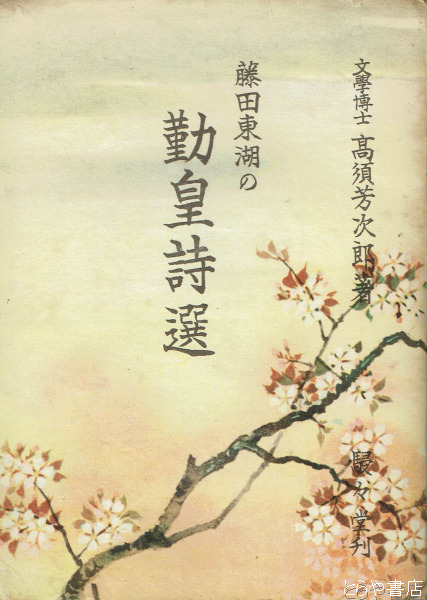 文學博士 高須芳次郎著
藤田東湖の
勤皇詩選
駸々堂刊
とうや書店